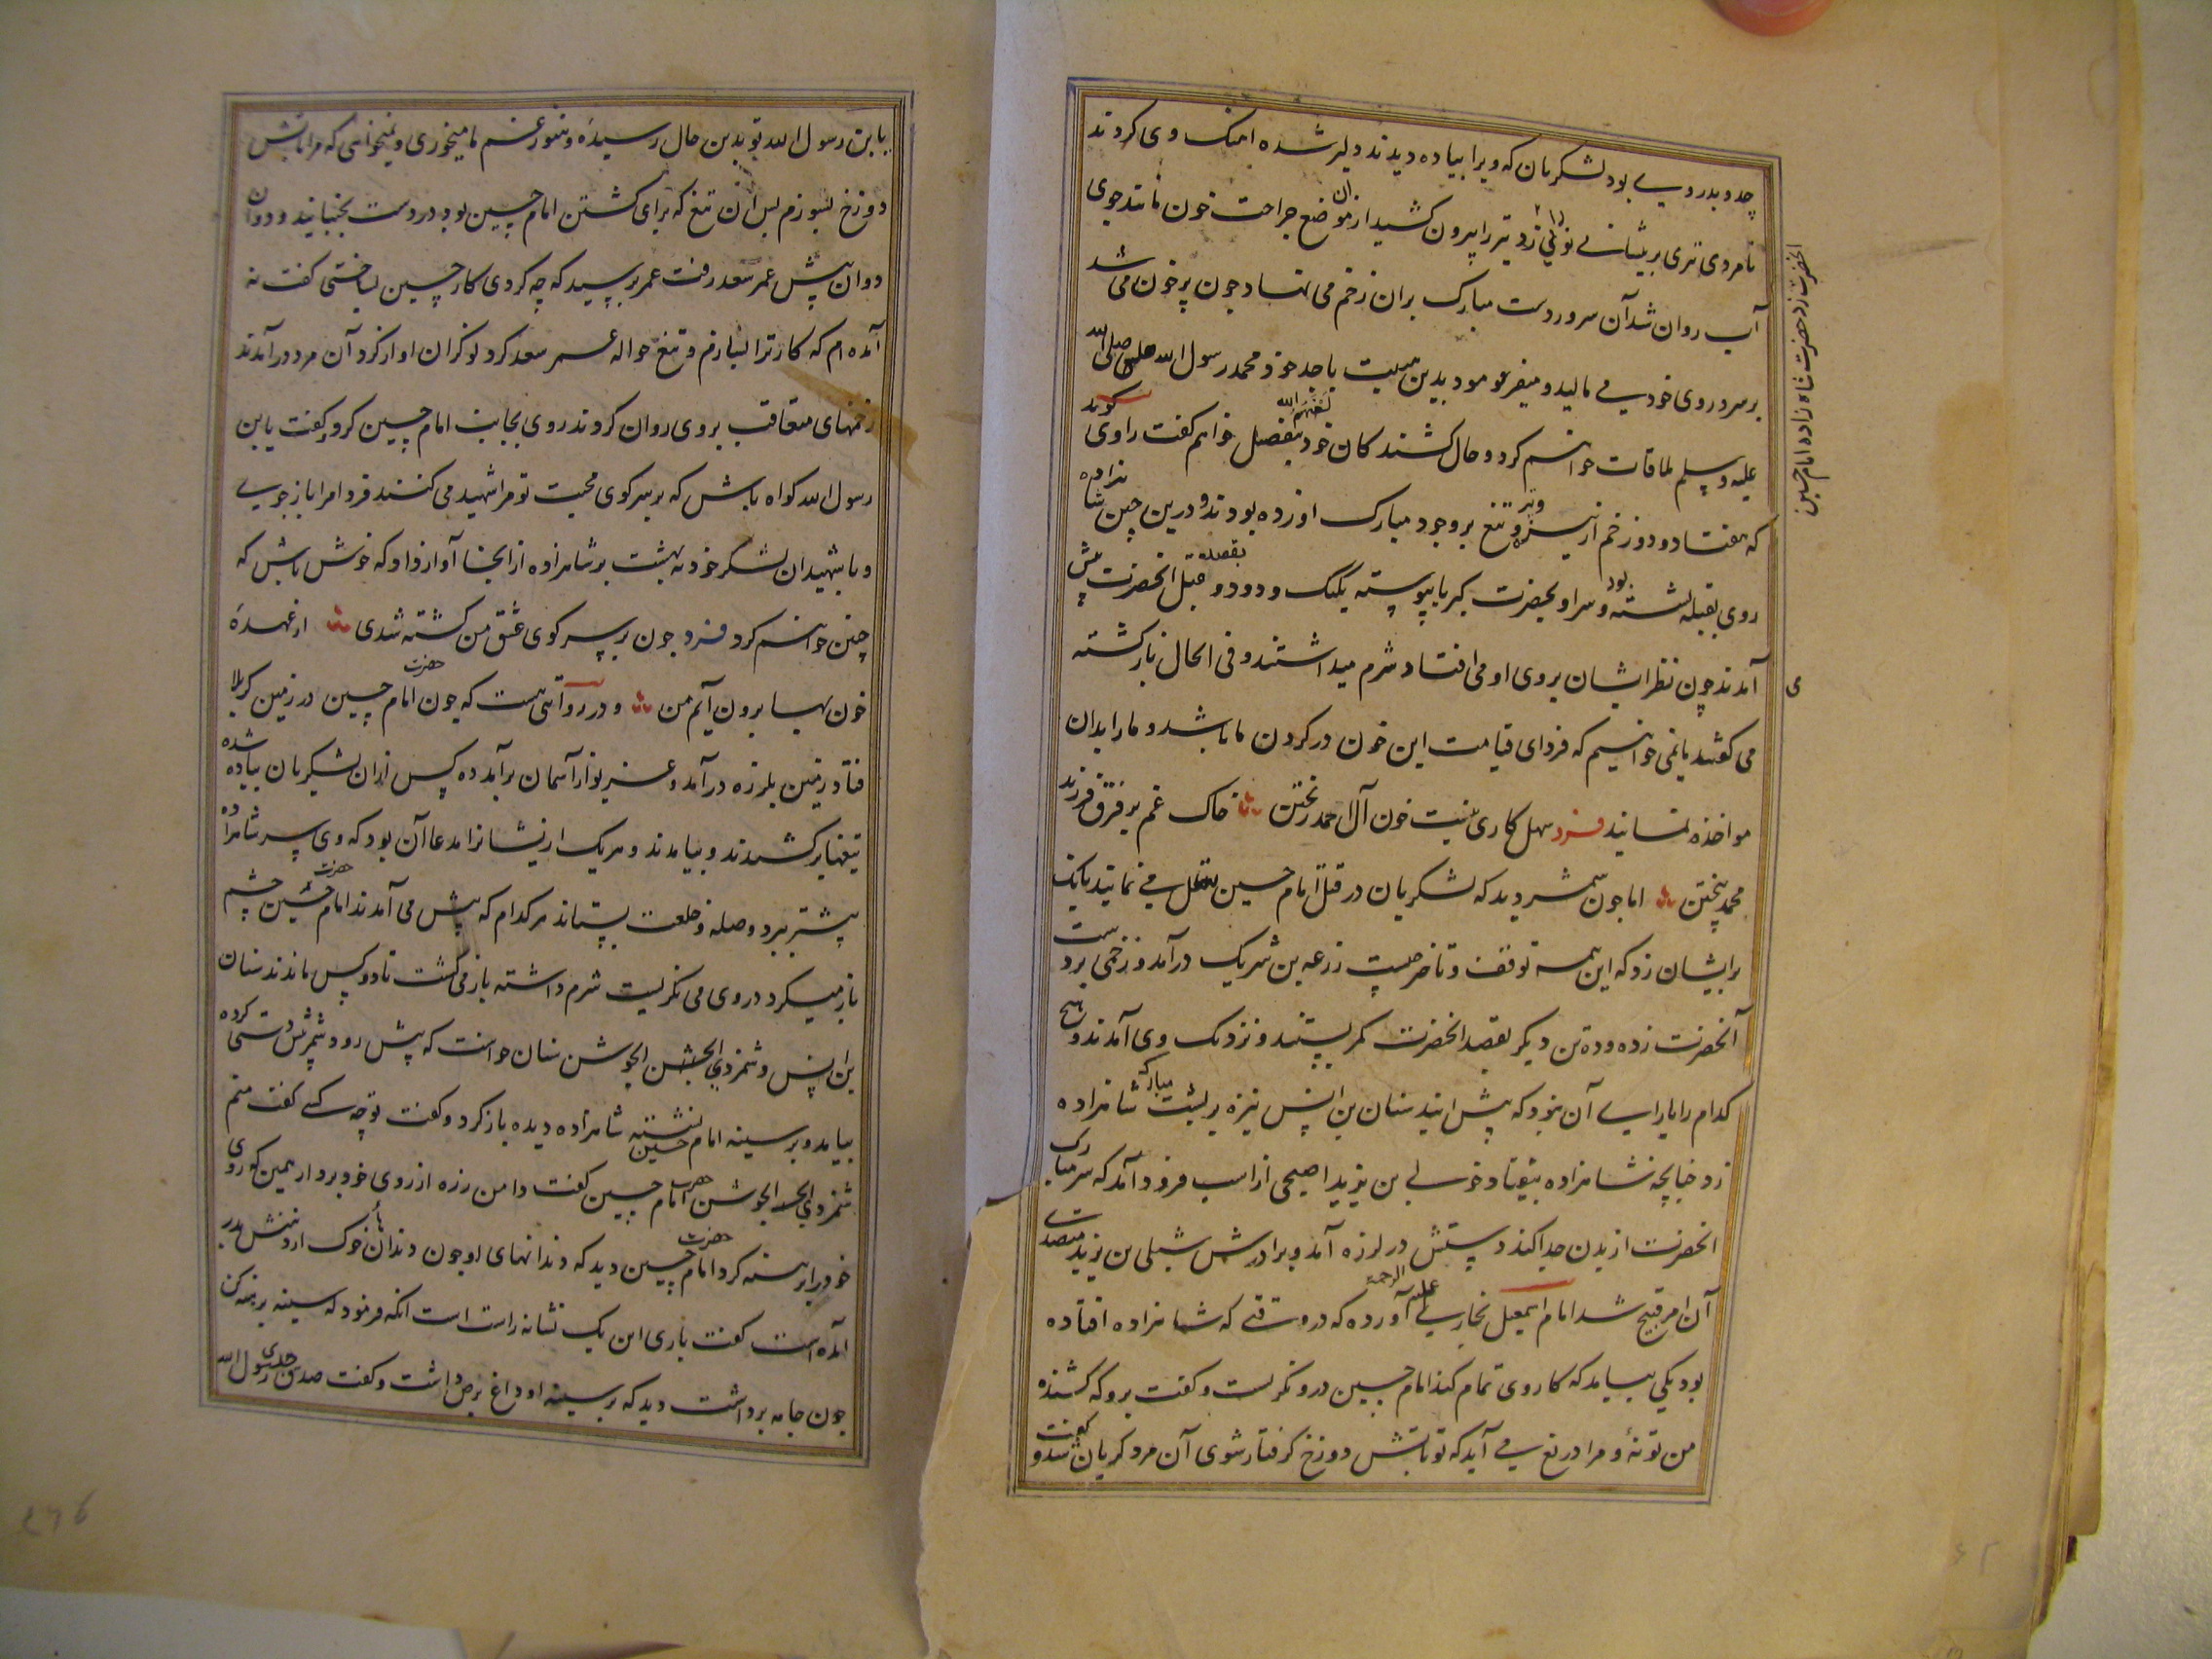 جد و پدر وی بود لشکریان که ویرا پیاده دیدند دلیر شده اهنک وی کردند
نامردی تیری بر پیشانی نورانی زد تیر را بیرون کشید از ان موضع جراحت خون مانند جوی
آب روان شد آن سرور دست مبارک بران زخم می نهاد چون پر خون می شد
بر سر و روی خود می مالید و میفرمود بدین هیئت با جد خود محمد رسول الله صلی الله
علیه و سلم ملاقات خواهم کرد و حال کشندکان خود بتفصیل خواهم کفت راوی کوید
که هفتاد و دو زخم از نیزه و تیر و تیغ بر وجود مبارک او زده بودند و درین حین شاهزاده
روی بقبله نشسته بود و سر او بحضرت کبریا پیوسته یکیک و دو دو بقصد قتل انحضرت پیش
آمدند چون نظر ایشان بروی او می افتاد شرم میداشتند و فی الحال باز کشته
می کفتند ما نمی خواهیم که فردای قیامت این خون در کردن ما باشد و ما را بدان
مواخذه نمایند فرد سهل کاری نیست خون آل احمد ریختن خاک غم بر فرق فرزند
محمد بیختن اما چون شمر دید که لشکریان در قتل امام حسین تعلل می نمایند بانک
بر ایشان زد که این همه توقف و تاخیر چیست زرعه بن شریک درآمد و زخمی بر دست
آنحضرت زد و ده تن دیکر بقصد انحضرت کمر بستند و نزدیک وی آمدند و هیچ
کدام را یارای آن نبود که پیش ایند سنان بن انس نیزه بر پشت مبارک شاهزاده
زد چنانچه شاهزاده بیفتاد خولی بن یزید اصبحی از اسب فرود آمد که سر مبارک
انحضرت از بدن جدا کند دستش در لرزه آمد و برادرش شبلی بن یزید متصدی
آن امر قبیح شد امام اسمعیل بخاری علیه الرحمة آورده که در وقتی که شاهزاده افتاده
بود یکی بیامد که کار وی تمام کند امام حسین درو نکریست و کفت برو که کشنده
من تو نهٔ و مرا دریغ می آید که تو بآتش دوزخ کرفتار شوی آن مرد کریان شد و کفت
انحضرت زد حضرت شاه زاده امام حسین
یا ابن رسول الله تو بدین حال رسیدهٔ و هنوز غم ما میخوری و نمیخواهی که ما را بآتش
دوزخ بسوزم پس آن تیغ که برای کشتن امام حسین بود در دست بجنبانید و دوان
دوان پیش عمر سعد رفت عمر پرسید که چه کردی کار حسین ساختی کفت نه
آمده ام که کار ترا بسازم و تیغ حواله عمر سعد کرد نوکران او از کرد آن مرد درآمدند
زخمهای متعاقب بر وی روان کردند روی بجانب امام حسین کرد و کفت یا ابن
رسول الله کواه باش که بر سر کوی محبت تو مرا شهید می کنند فردا مرا باز جوی
و با شهیدان لشکر خود به بهشت بر شاهزاده از انجا آواز داد که خوش باش که
چنین خواهم کرد فرد چون بر سر کوی عشق من کشته شدی از عهدهٔ
خون بها برون آیم من و در روآیتی هست که چون حضرت امام حسین در زمین کربلا
فتاد زمین بلرزه درآمد و غریو از آسمان برآمد ده کس از ان لشکریان پیاده شده
تیغها برکشیدند و بیامدند و هر یک از یشان را مدعا آن بود که وی سر شاهزاده
پیشتر ببرد و صله و خلعت بستاند هر کدام که پیش می آمدند حضرت امام حسین چشم
باز میکرد در وی می نکریست شرم داشته باز می کشت تا دو کس ماندند سنان
بن انس و شمر ذی الجوشن سنان خواست که پیش رود شمر پیش دستی کرده
بیامد و بر سینه امام حسین نشست شاهزاده دیده باز کرد و کفت تو چه کسی کفت منم
شمر ذی الجوشن حضرت امام حسین کفت دامن زره از روی خود بردار همین که روی
خود را برهنه کرد حضرت امام حسین دید که دندانهای او چون دندان خوک از دهنش بدر
آمده است کفت باری این یک نشانه راست است انکه فرمود که سینه برهنه کن
چون جامه برداشت دید که بر سینه او داغ برص داشت و کفت صدق جدی رسول الله